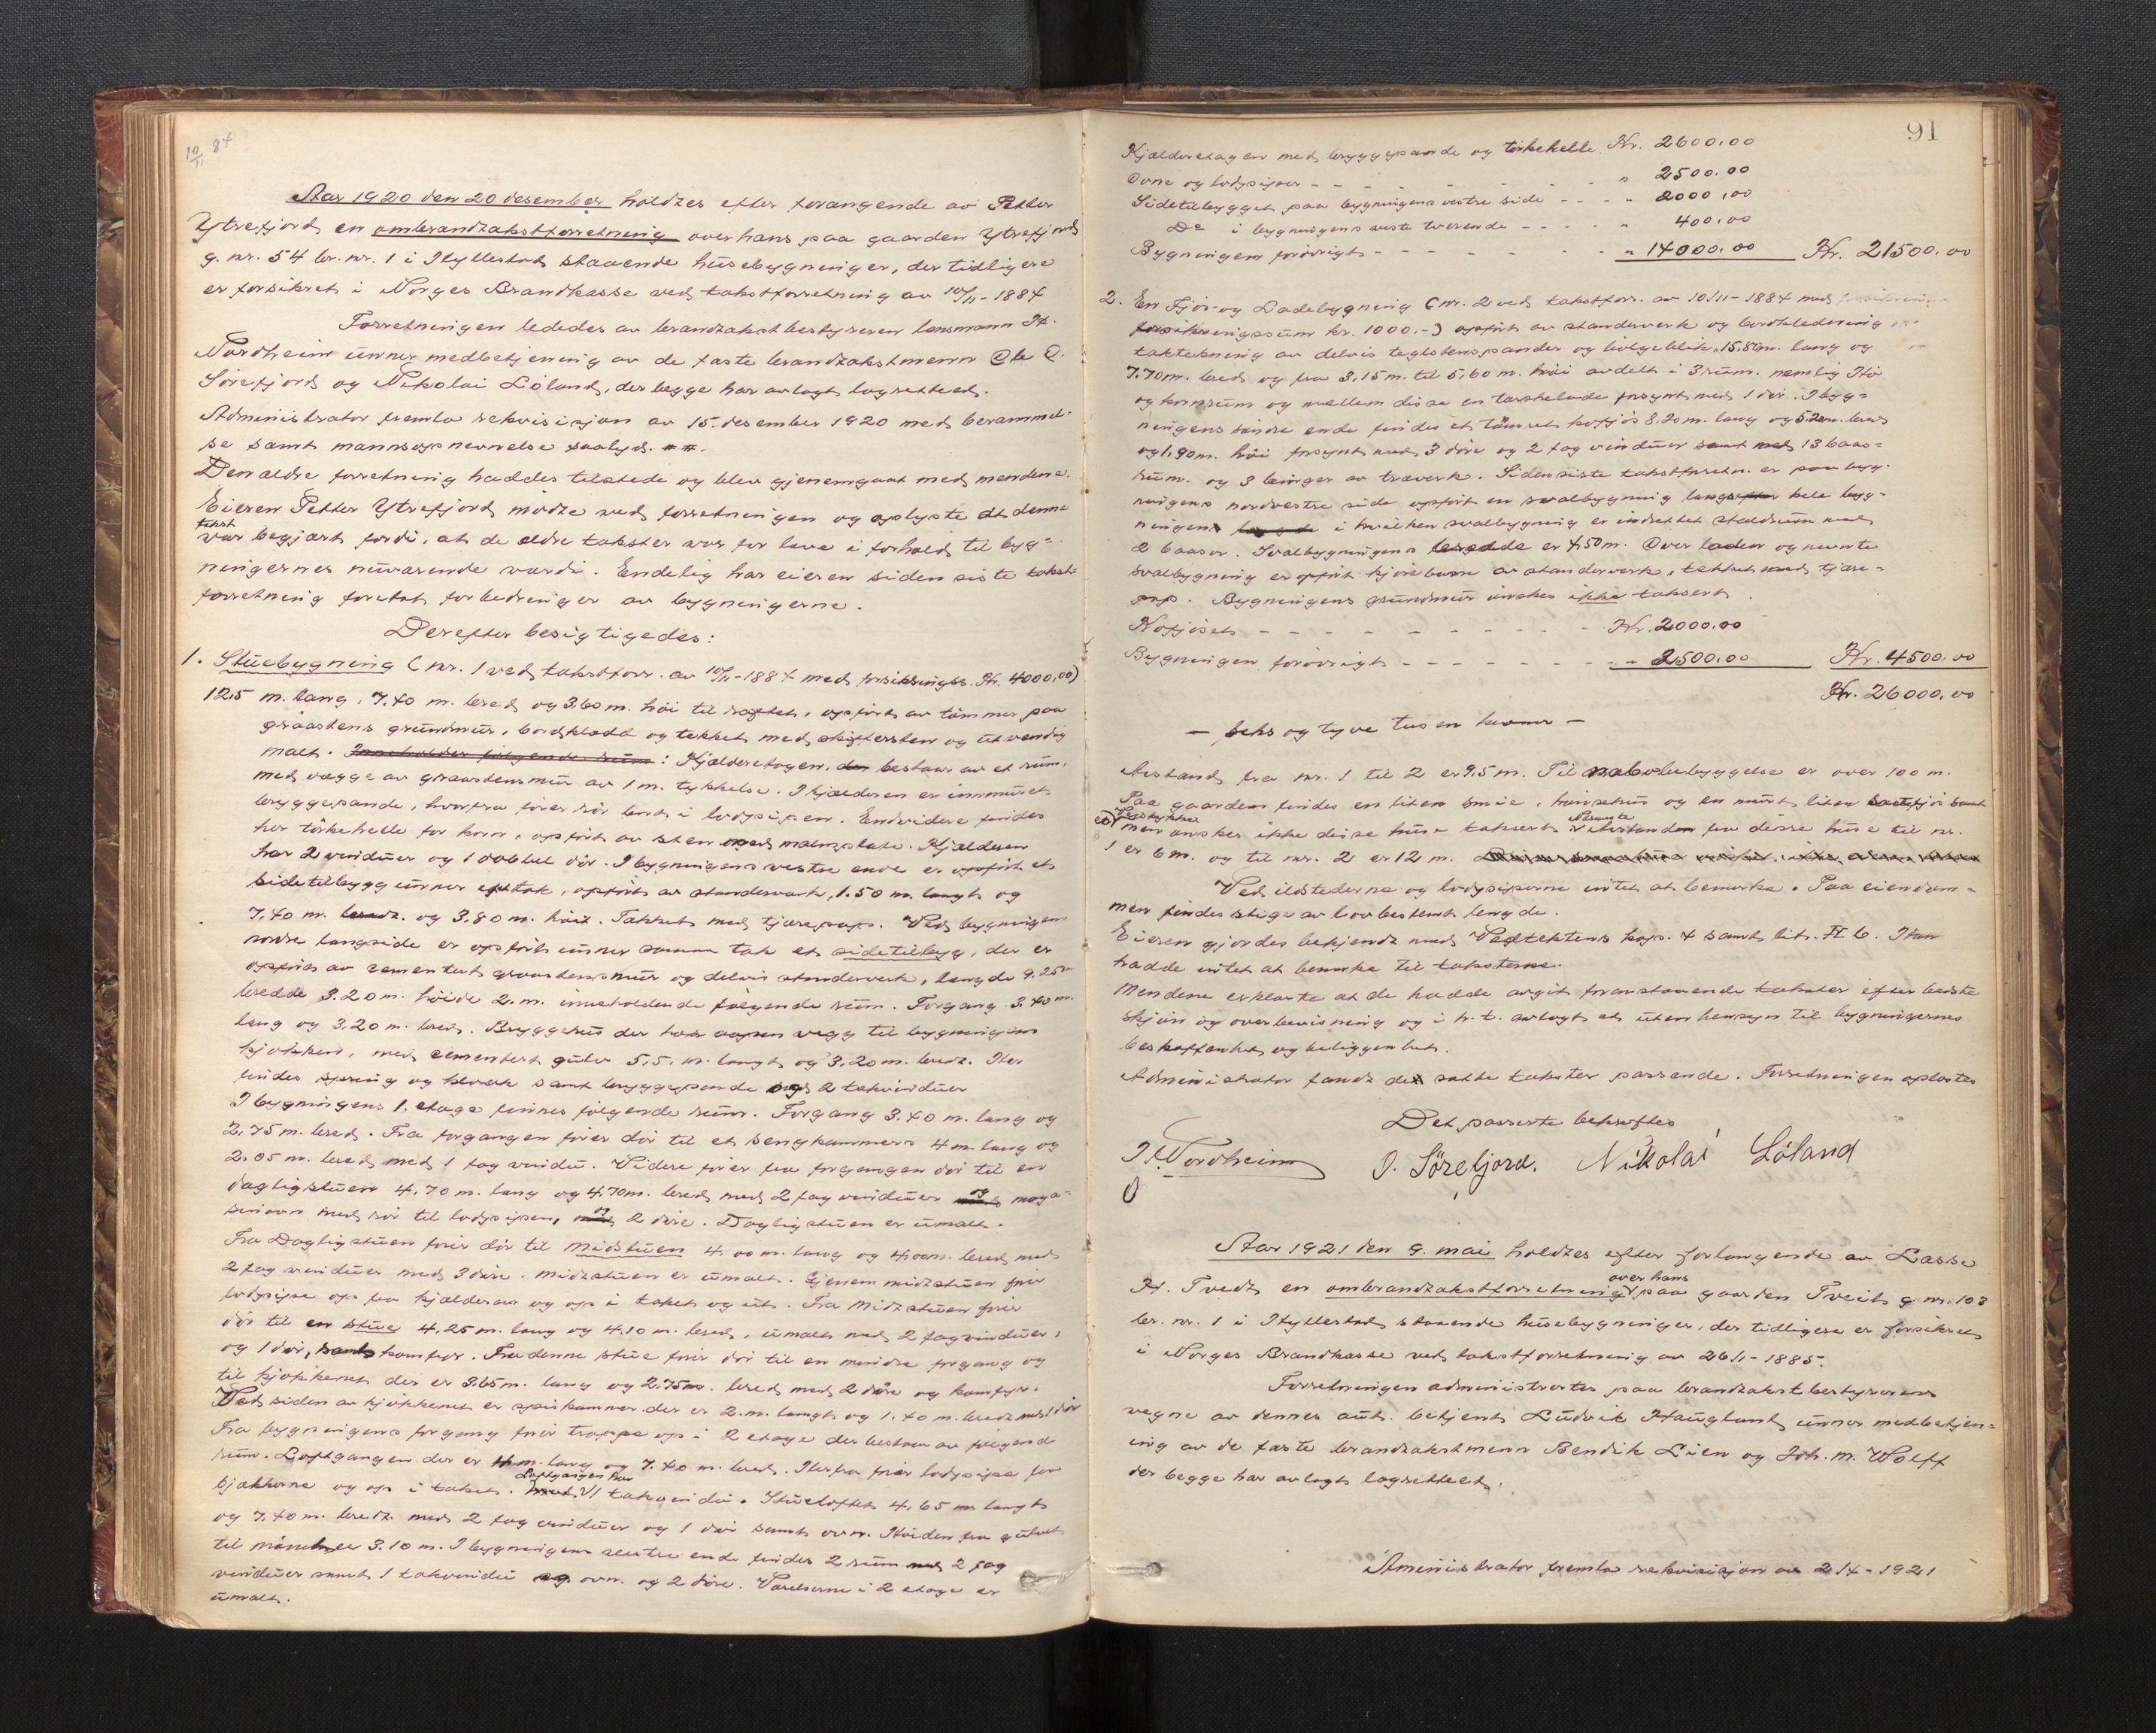 10/11 84
Aar 1920 den 20 desember holdtes efter forangende av Petter
Ytrefjord en ombrandtakstforretning over hans paa gaarden Ytrefjord
g. nr. 54 br. nr. 1 i Hyllestad staaende husebygninger, der tidligere
er forsikret i Norges Brandkasse ved takstforretning av 10/11-1884
Forretningen lededes av brandtakstbestyreren lensmann H.
Nordheim unner medbetjening av de faste brandtakstmenn Ole O.
Sørefjord og Nikolai Løland, der begge har avlagt lagretteed.
Administrator fremla rekvisisjon av 15. desember 1920 med berammel-
se samt mannsopnevnelse saalyd. ##.
Den ældre forretning haddes tilstede og blev gjenemgaat med mendene.
Eieren Petter Ytrefjord møtte ved forretningen og oplyste at denne
takst
var begjært fordi, at de eldre takster var for lave i forhold til byg-
ningernes nuværende værdi. Endelig har eieren siden siste takst-
forretning foretat forbedringer av bygningerne.
Derefter besigtigedes:
1. Stuebygning (nr. 1 ved takstforr. av 10/11-1884 med forsikringss. Kr. 4000,00)
12,5 m. lang, 7,40 m. bred og 3,60 m. høi til røftet, opført av tømmer paa
graastens grundmur, bordklædt og tekket med skifersten og utvendig
malt. Inneholder følgende rum: Kjælderetagen, der bestaar av et rum,
med vægge av graastensmur av 1 m. tykkelse. I kjælderen er innmuret
bryggepande, hvorfra fører rør bort i lodpipen. Endvidere findes
her tørkehelle for korn, opført av sten med malmplate. Kjælderen
har 2 vinduer og 1 dobbel dør. I bygningens vestre ende er opført et
sidetilbygg unner tak, opført av standerverk, 1.50 m. langt og
7,40 m. bredt. og 3,80 m. høit. Tækket med tjærepap. Ved bygningens
nordre langside er opført unner samme tak et sidetilbygg, der er
opført av cementert graastensmur og delvis standerverk, lengde 9.25 m
bredde 3.20 m. høide 2. m. inneholdende følgende rum. Forgang 3.40 m.
lang og 3,20 m. bred. Bryggerus der har aapen vegg til bygningens
kjøkken, med cementert gulv 5,5. m. langt og 3,20 m. bredt. Her
findes spring og kloak samt bryggepande og 2 takvinduer
I bygningens 1. etage finnes følgende rum. Forgang 3.40 m. lang og
2,75 m. bred. Fra forgangen fører dør til et sengkammers 4 m. lang og
2.05 m. bred med 1 fag vindu. Videre fører fra forgangen dør til en
dagligstuen 4,70 m. lang og 4,70 m. bred med 2 fag vinduer og maga-
sinovn med rør til lodpipen, og 2 døre. Dagligstuen er umalt.
Fra Dagligstuen fører dør til Midstuen 4.00 m. lang og 4,00 m. bred med
2 fag vinduer med 3 døre. Midtstuen er umalt. Gjenem midtstuen fører
lodpipe op fra kjælderen og op i taket og ut. Fra Midtstuen fører
dør til en stue 4,25 m. lang og 4.10 m. bred, umalt med 2 fag vinduer,
og 1 dør, samt komfyr. Fra denne stue fører dør til en mindre forgang og
til kjøkkenet der er 3.65 m. lang og 2,75 m. bred med 2 døre og komfyr.
Ved siden av kjøkkenet er spiskammer der er 2. m. langt og 1.40 m. bredt med 1 dør
Fra bygningens forgang fører trappe op i 2 etage der bestaar av følgende
rum. Loftgangen der er m. lang og 7.40 m. bred. Herfra fører lodpipe fra
Loftgangen har
kjøkkerne og op i taket. 1 takvindu. Stueloftet 4,65 m. langt
og 7,40 m. bredt med 2 fag vinduer og 1 dør samt ovn. Høiden fra gulvet
til møneh er 3.10 m. I bygningens vestre ende findes 2 rum med 2 fag
vinduer samt 1 takvindu og ovn. og 2 døre. Værelserne i 2 etage er
umalt.
91
Kjælderetagen med bryggepande og tørkehelle Kr. 2600.00
Ovne og lodpiper - - - - - " 2500.00
Sidetilbygget paa bygningens vestre side - - - " 2000,00
Do i bygningens veste tverende - - - - " 400.00
Bygningen forøvrigt - - - - - " 14000.00 Kr. 21500.00
2. En Fjøs- og Ladebygning (nr. 2 ved takstforr. av 10/11-1884 med
forsikringssum kr. 1000.-) opført av standerverk og bordkledning
taktekning av delvis teglstenspander og bølgeblik, 15,80 m. lang og
7.70 m. bred og fra 3,15 m. til 5,60 m. høi avdelt i 3 rum. nemlig Hø
og kornrum og mellem disse en tærskelade forsynt med 1 dør. I byg-
ningens søndre ende findes et tømret kofjøs 8.20 m. lang og 5.20 m. bred
og 1,90 m. høi forsynt med 3 døre og 2 fag vinduer samt med 13 baas-
rum. og 3 binger av træverk. Siden siste takstforretn. er paa byg-
ningens nordvestre side opført en svalbygning langs hele byg-
ningen i hvilken svalbygning er indrettet staldrum med
2 baaser. Svalbygningens bredde er 4,50 m. Over laden og nevnte
svalbygning er opført kjørebro av standerverk, tekket med tjære-
pap. Bygningens grundmur ønskes ikke taksert.
Kofjøset - - - - - - Kr. 2000.00
Bygningen forøvrigt - - - - - " 2500.00 Kr. 4500.00
Kr. 26000,00
- seks og tyve tusen kroner -
Avstand fra nr. 1 til 2 er 9,5 m. Til nabobebyggelse er over 100 m.
Paa gaarden findes en liten smie, hønsehus og en murt liten sauefjøs samt
men ønsker ikke disse huse taksert. Nærmeste Avstanden fra disse huse til nr.
1 er 6 m. og til nr. 2 er 12 m.
Ved ildstederne og lodpiperne intet at bemerke. Paa eiendom-
men findes stige av lovbestemt lengde.
Eieren gjordes bekjendt med Vedtektens kap. 4 samt lit. H b. Han
hadde intet at bemerke til taksterne.
Mendene erklærte at de hadde avgit foranstaaende takster efter bedste
skjøn og overbevisning og i h. t. avlagt ed uten hensyn til bygningernes
beskaffenhet og beliggenhet.
Administrator fandt de satte takster passende. Forretningen oplæstes
Det passerte bekræftes
H. Nordheim O. Sørefjord. Nikolai Løland
Aar 1921 den 9. mai holdtes efter forlangende av Lasse
over hans
H. Tvedt en ombrandtakstforretning paa gaarden Tveit g. nr. 103
br. nr. 1 i Hyllestad staaende husebygninger, der tidligere er forsikret
i Norges Brandkasse ved takstforretning av 26/1-1885.
Forretningen administrertes paa brandtakstbestyrerens
vegne av dennes aut. betjent Ludvik Haugland unner medbetjen-
ing av de faste brandtakstmenn Bendik Lien og Joh. M. Wolff
der begge har avlagt lagretteet.
Aministrator fremla rekvisisjon av 2/4-1921